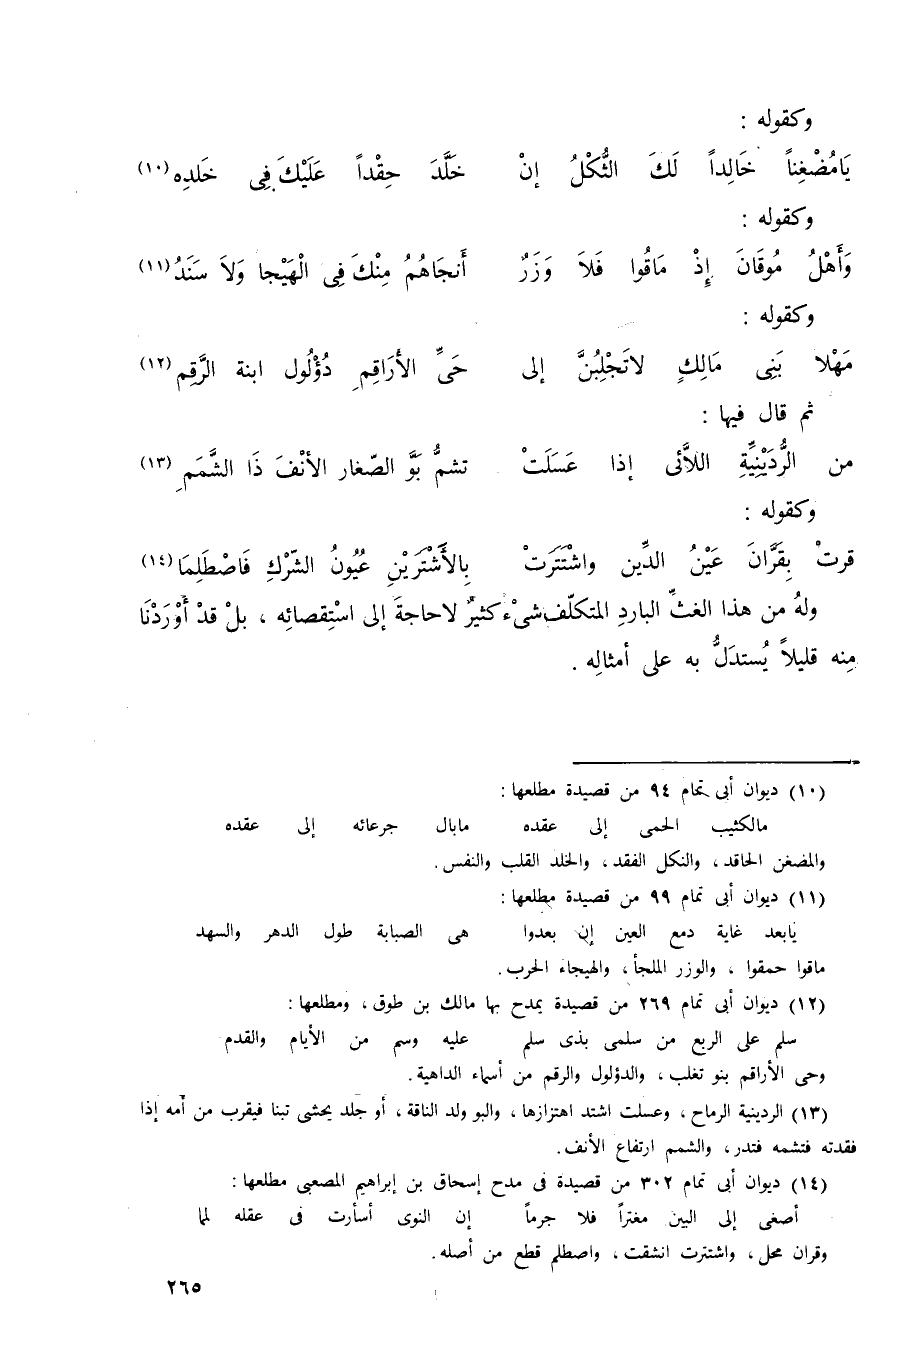 وكقوله :
يَامُضْغِناً خَالِداً لَكَ الثُّكْلُ إنْ خَلَّدَ حِقْداً عَلَيْكَ فِى خَلدِه (١٠)
وكقوله :
وَأَهْلُ مُوقَانَ إِذْ مَاقُوا فَلاَ وَزَرٌ أَنجَاهُمُ مِنْكَ فِى الْهَيْجا وَلاَ سَنَدُ (١١)
وكقوله :
مَهْلا بَنِى مَالِكٍ لاتَجْلِبُنَّ إلى حَىِّ الأَرَاقِمِ دُؤْلُول ابنة الرَّقِم (١٢)
ثم قال فيها :
من الرُّدَيْنِيَّةِ اللاَّئى إذا عَسَلَتْ تشمُّ بَوَّ الصّغار الأنْفَ ذَا الشَّمَمِ (١٣)
وكقوله :
قرتْ بِقَرَّانَ عَيْنُ الدِّين واشْتَتَرَتْ بِالأَشْتَرَيْنِ عُيُونُ الشّرْكِ فَاصْطَلِمَا (١٤)
ولهُ من هذا الغثِّ الباردِ المتكلّف شىْءٌ كثيرٌ لاحاجةَ إلى استْقِصائه ، بلْ قدْ أوْرَدْنَا
مِنه قليلاً يُستدَلُّ به على أمثالِه .
(١٠) ديوان أبى تمام ٩٤ من قصيدة مطلعها :
مالكثيب الحمى إلى عقده مابال جرعائه إلى عقده
والمضغن الحاقد ، والنكل الفقد ، والخلد القلب والنفس .
(١١) ديوان أبى تمام ٩٩ من قصيدة مطلعها :
يابعد غاية دمع العين إن بعدوا هى الصبابة طول الدهر والسهد
ماقوا حمقوا ، والوزر الملجأ ، والهيجاء الحرب .
(١٢) ديوان أبى تمام ٢٦٩ من قصيدة يمدح بها مالك بن طوق ، ومطلعها :
سلم على الربع من سلمى بذى سلم عليه وسم من الأيام والقدم
وحى الأراقم بنو تغلب ، والدؤلول والرقم من أسماء الداهية .
(١٣) الردينية الرماح ، وعسلت اشتد اهتزازها ، والبو ولد الناقة ، أو جلد يحشى تبنا فيقرب من أمه إذا
فقدته فتشمه فتدر ، والشمم ارتفاع الأنف .
(١٤) ديوان أبى تمام ٣٠٢ من قصيدة فى مدح إسحاق بن إبراهيم المصعبى مطلعها :
أصغى إلى البين مغتراً فلا جرماً إن النوى أسأرت فى عقله لما
وقران محل ، واشتترت انشقت ، واصطلم قطع من أصله .
٢٦٥